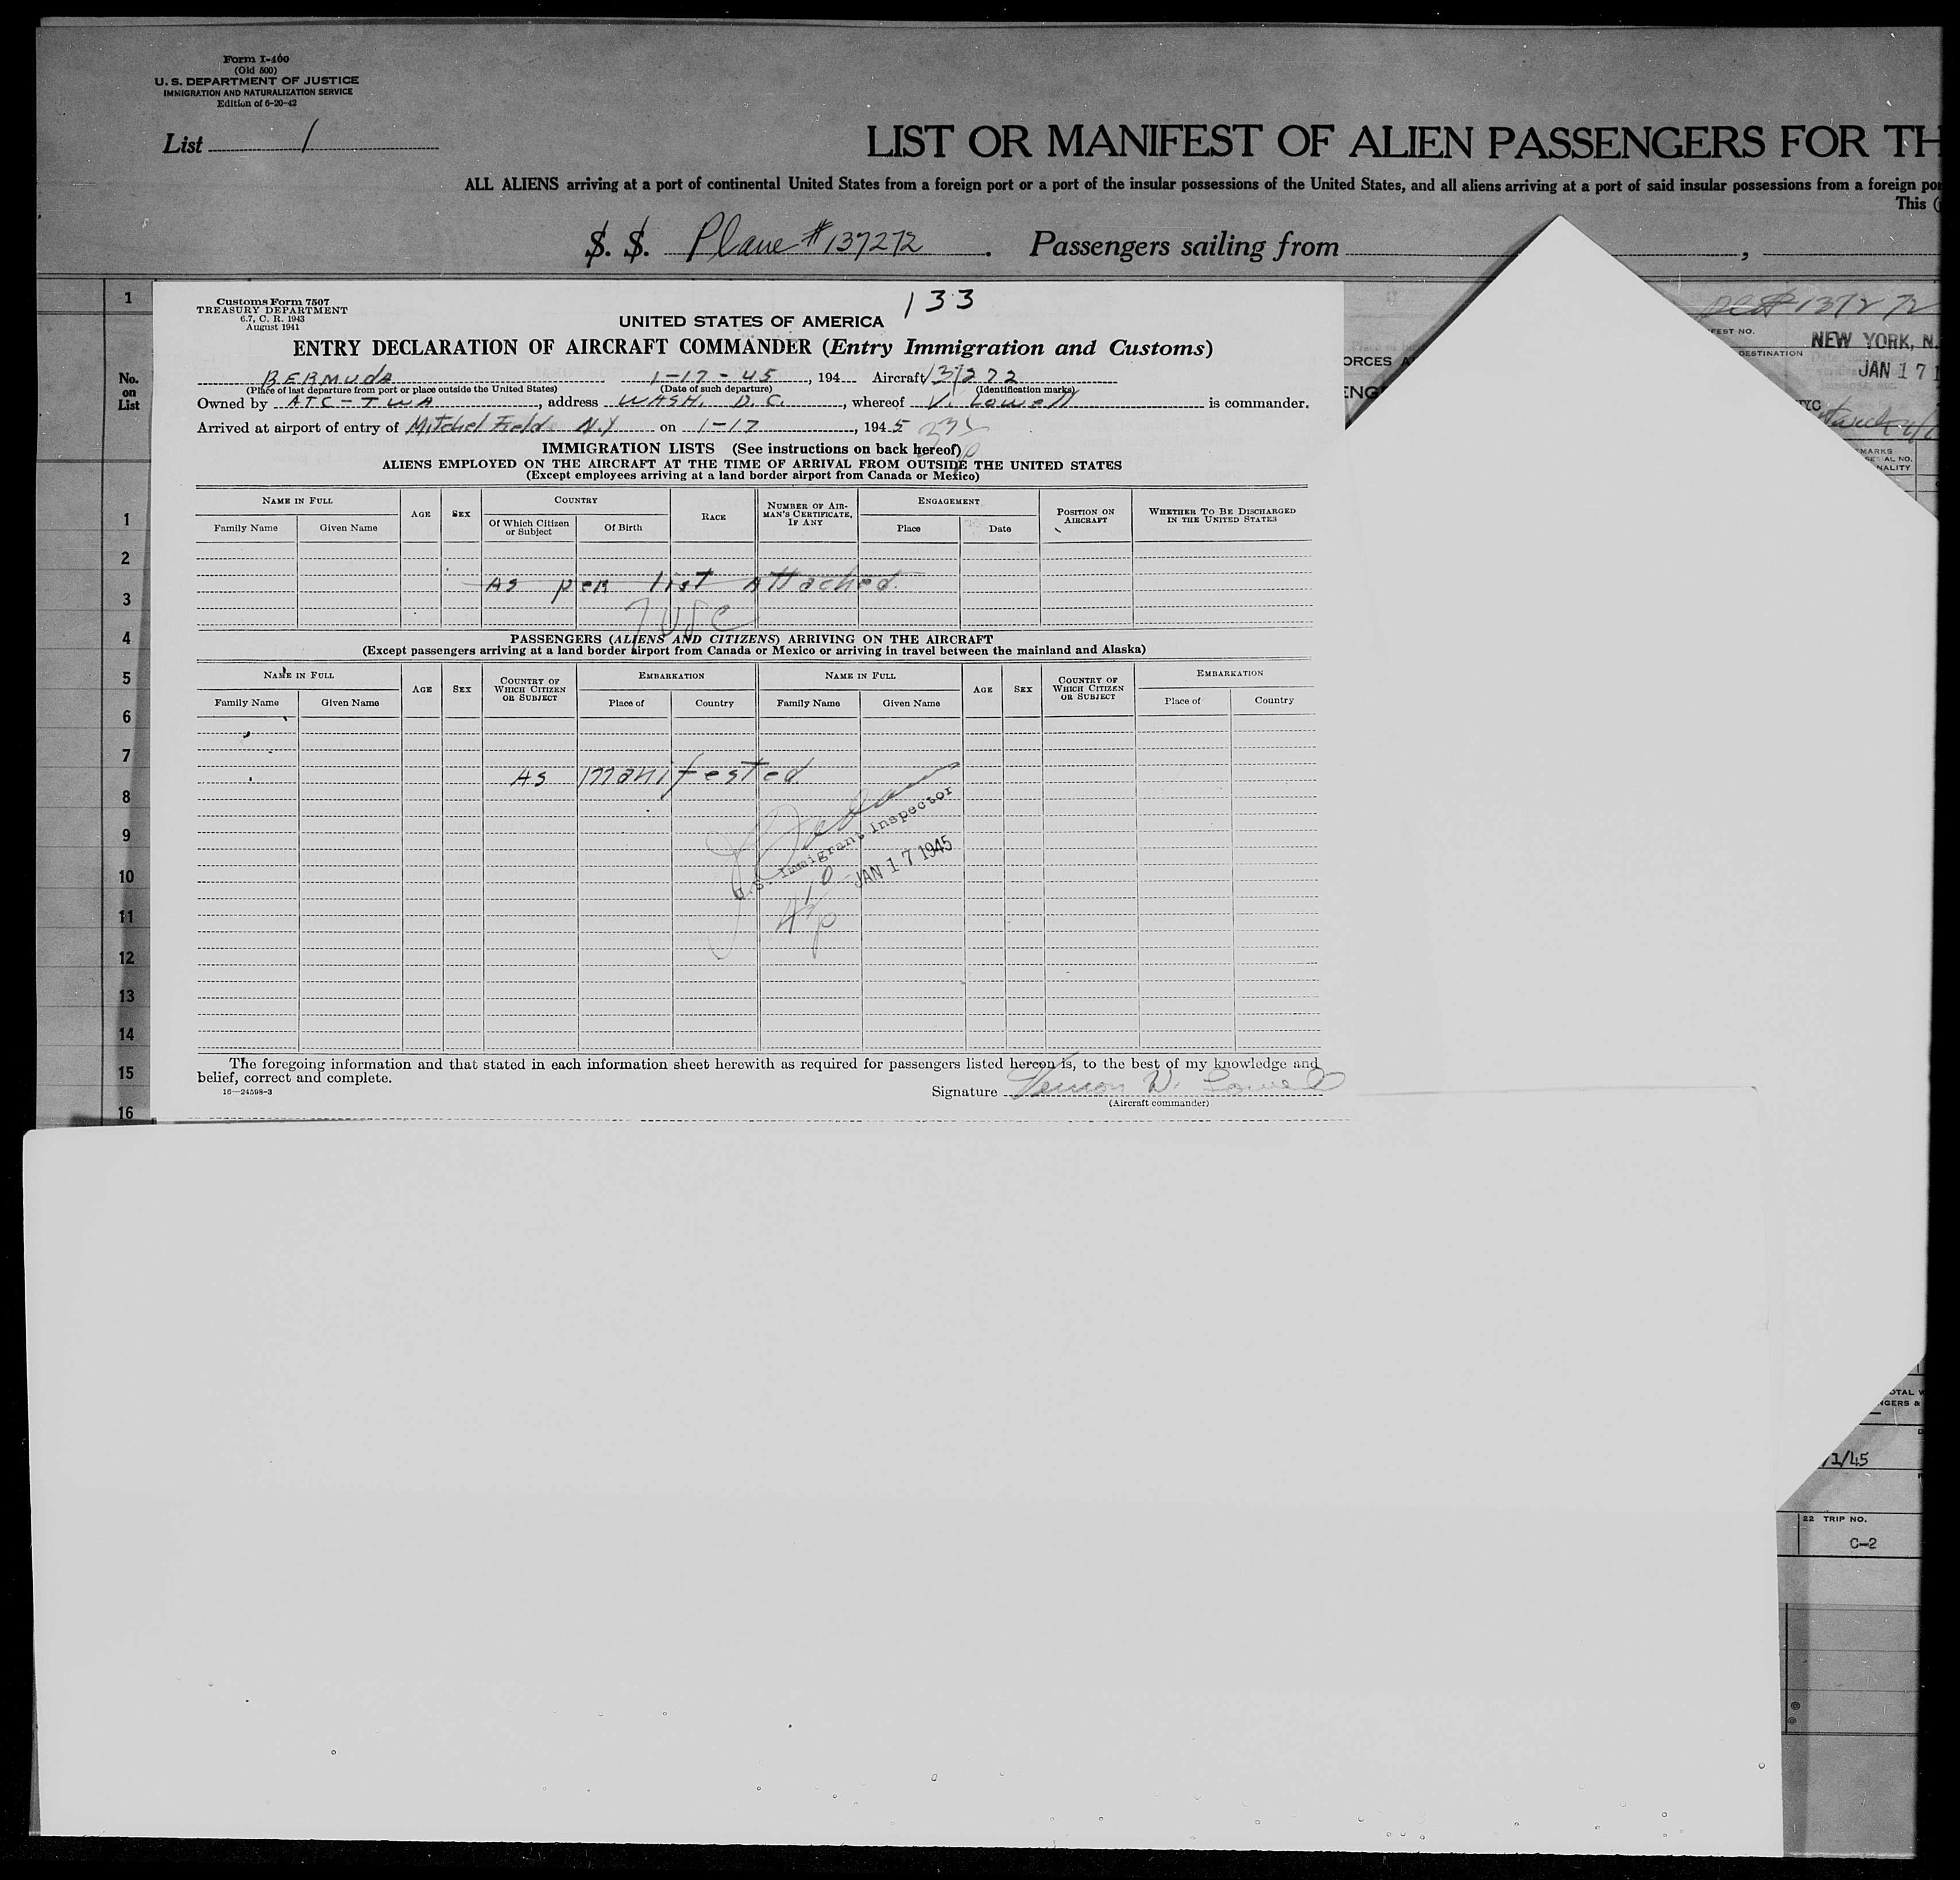 Form I-400
(Old 500)
U. S. DEPARTMENT OF JUSTICE
IMMIGRATION AND NATURALIZATION SERVICE
Edition of 6-20-42
List 1
LIST OR MANIFEST OF ALIEN PASSENGERS FOR TH
ALL ALIENS arriving at a port of continental United States from a foreign port or a port of the insular possessions of the United States, and all aliens arriving at a port of said insular possessions from a foreign por
This (
S. S. Plane #137272. Passengers sailing from ,
133
Customs Form 7507
TREASURY DEPARTMENT
6.7, C. R. 1943
August 1941
UNITED STATES OF AMERICA
ENTRY DECLARATION OF AIRCRAFT COMMANDER (Entry Immigration and Customs)
BERMUDA 1-17-45, 194 Aircraft 137272
(Place of last departure from port or place outside the United States) (Date of such departure) (Identification marks)
Owned by ATC-TWA, address WASH. D.C., whereof V. Lowell is commander.
Arrived at airport of entry of Mitchel Field N.Y on 1-17, 1945
IMMIGRATION LISTS (See instructions on back hereof)
ALIENS EMPLOYED ON THE AIRCRAFT AT THE TIME OF ARRIVAL FROM OUTSIDE THE UNITED STATES
(Except employees arriving at a land border airport from Canada or Mexico)
NAME IN FULL AGE SEX COUNTRY RACE NUMBER OF AIRMAN'S CERTIFICATE, IF ANY ENGAGEMENT POSITION ON AIRCRAFT WHETHER TO BE DISCHARGED IN THE UNITED STATES
Family Name Given Name Of Which Citizen or Subject Of Birth Place Date
As per list attached.
7 USC
PASSENGERS (ALIENS AND CITIZENS) ARRIVING ON THE AIRCRAFT
(Except passengers arriving at a land border airport from Canada or Mexico or arriving in travel between the mainland and Alaska)
NAME IN FULL AGE SEX COUNTRY OF WHICH CITIZEN OR SUBJECT EMBARKATION NAME IN FULL AGE SEX COUNTRY OF WHICH CITIZEN OR SUBJECT EMBARKATION
Family Name Given Name Place of Country Family Name Given Name Place of Country
As manifested
U.S. Immigrant Inspector
JAN 17 1945
The foregoing information and that stated in each information sheet herewith as required for passengers listed hereon is, to the best of my knowledge and
belief, correct and complete.
16—24598-3
Signature Vernon W. Lowell
(Aircraft commander)
1
No.
on
List
1
2
3
4
5
6
7
8
9
10
11
12
13
14
15
16
137272
FEST NO.
NEW YORK, N.
DESTINATION
JAN 17 1
ORCES A
ENG
YC
MARKS
AL NO.
NALITY
OTAL W
NGERS &
1/45
22 TRIP NO.
C-2